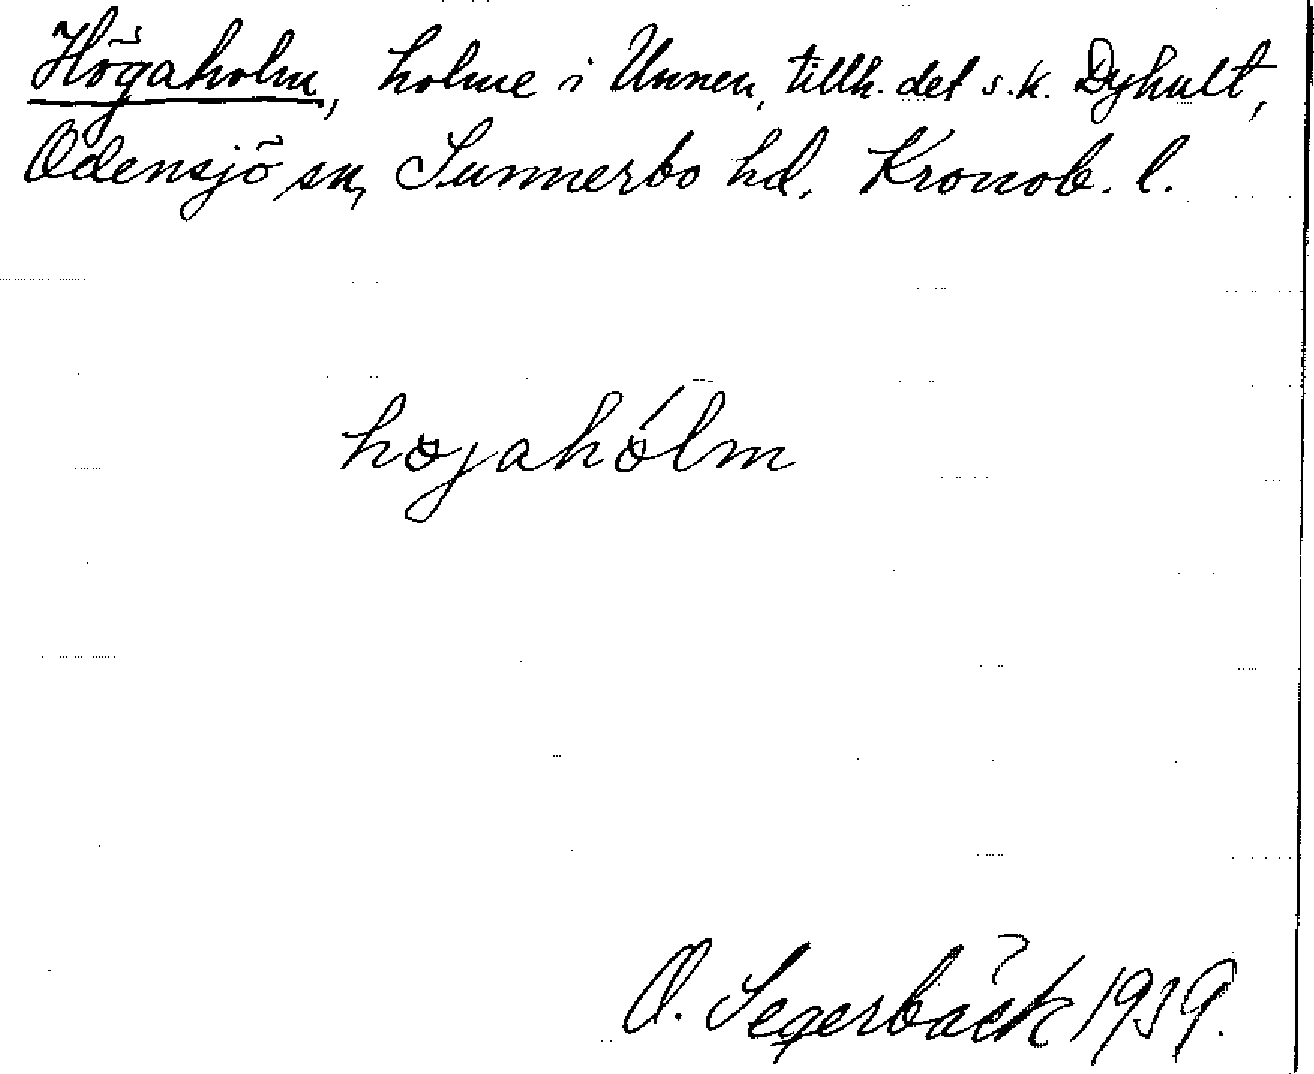 Högaholm, holme i Unnen, tillh. det s.k. Dyhult,
Odensjö sn, Sunnerbo hd. Kronob. l.
højahólm
O. Segerbäck 1939.